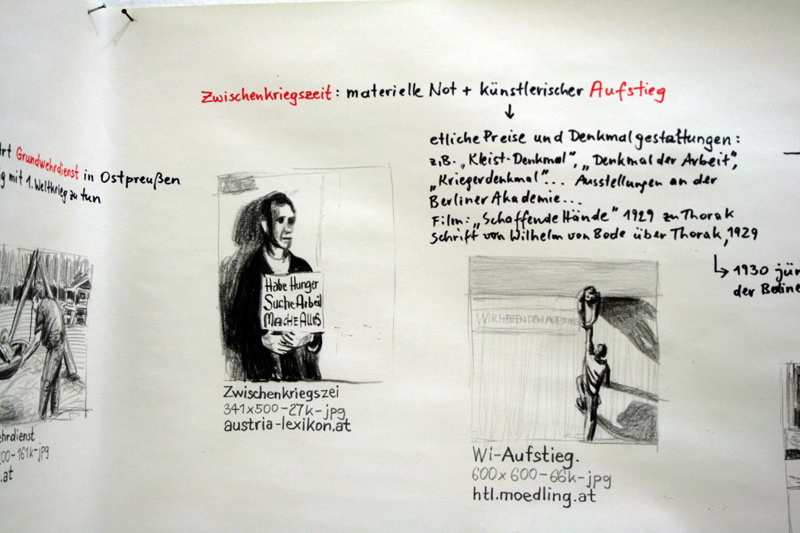 Zwischenkriegszeit: materielle Not + künstlerischer Aufstieg
Grundwehrdienst in Ostpreußen
mit 1. Weltkrieg zu tun
etliche Preise und Denkmalgestaltungen:
z.B. "Kleist-Denkmal", "Denkmal der Arbeit",
"Kriegerdenkmal"... Ausstellungen an der
Berliner Akademie...
Film: "Schaffende Hände" 1929 zu Thorak
Schrift von Wilhelm von Bode über Thorak, 1929
1930 jür
der Berline
Habe Hunger
Suche Arbeit
Mache Alles
Zwischenkriegszei
341x500-27k-jpg
austria-lexikon.at
Wi-Aufstieg.
600x600-66k-jpg
htl.moedling.at
hrdienst
00-161k-jpg
.at